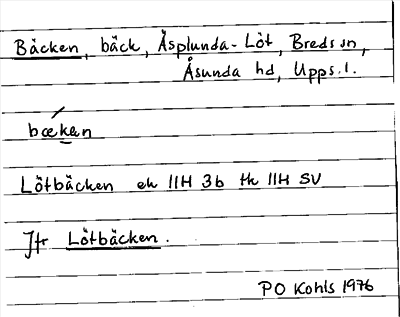 Bäcken, bäck, Äsplunda-Löt, Breds sn,
Åsunda hd, Upps. l.
bækɛn
Lötbäcken ek 11H 3b tk 11H SV
Jfr Lötbäcken.
PO Kohls 1976